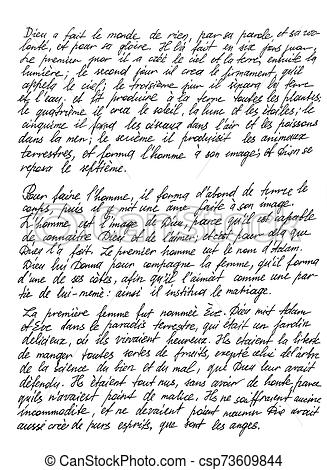 Dieu a fait le monde de rien, par sa parole et sa vo-
lonté, et pour sa gloire. Il l'a fait en six jours
Le premier jour il a créé le ciel et la terre, ensuite la
lumière; le second jour il créa le firmament, qu'il
appela le ciel; le troisième jour il sépara la terre
et l'eau, et fit produire à la terre toutes les plantes;
le quatrième il créa le soleil, la lune et les étoiles; le
cinquième il fond les oiseaux dans l'air et les poissons
dans la mer; le sixième il produisit les animaux
terrestres, et forma l'homme à son image; et Dieu se
reposa le septième.
Pour faire l'homme, il forma d'abord de terre le
corps puis il y mit une âme faite à son image.
L'homme est l'image de Dieu, parce qu'il est capable
de connaître Dieu et de l'aimer, et c'est pour cela que
Dieu l'a fait. Le premier homme eut le nom d'Adam.
Dieu lui donna pour compagne la femme, qu'il forma
d'une de ses côtes, afin qu'il l'aimât comme une par-
tie de lui-même: ainsi il institua le mariage.
La première femme fut nommée Eve. Dieu mit Adam
et Eve dans le paradis terrestre, qui était un jardin
délicieux, où ils vivaient heureux. Ils étaient la liberté
de manger toutes sortes de fruits, excepté celui de l'arbre
de la science du bien et du mal, que Dieu leur avait
défendu. Ils étaient tout nus, sans avoir de honte parce
qu'ils n'avaient point de malice. Ils ne souffraient aucune
incommodité, et ne devaient point mourir. Dieu avait
aussi créé de purs esprits, que sont les anges.
© CanStockPhoto.com - csp73609844